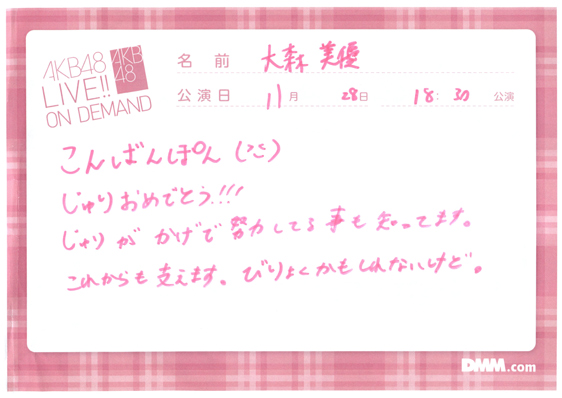 AKB48
LIVE!!
ON DEMAND
AKB
48
名前 大森美優
公演日 11月 28日 18:30 公演
こんばんぽん
じゅりおめでとう!!!
じゅりがかげで努力してる事も知ってます。
これからも支えます。びりょくかもしれないけど。
DMM.com